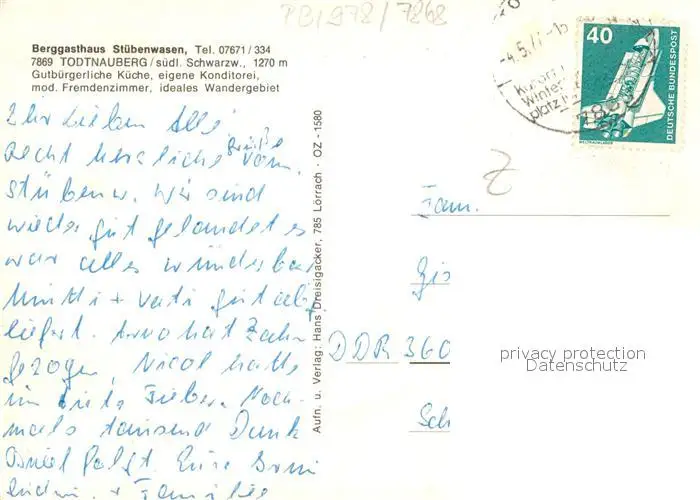 PBI978/7868
Berggasthaus Stübenwasen, Tel. 07671/334
7869 TODTNAUBERG/südl. Schwarzw., 1270 m
Gutbürgerliche Küche, eigene Konditorei,
mod. Fremdenzimmer, ideales Wandergebiet
Ihr Lieben Alle
recht herzliche Grüße vom
Stübenw. Wir sind
wieder gut gelandet es
war alles wunderbar
Mutti + Vati gut abge
liefert. Anno hat Zahn
gezogen, Nicol hatte
Fieber. Noch-
mals tausend Dank
Brief folgt. Eure
+ Familie
Aufn. u. Verlag: Hans Dreisigacker, 785 Lörrach · OZ - 1580
-4.5.77-15
Winter
platz
786
40
DEUTSCHE BUNDESPOST
WELTRAUMLABOR
Z
Fam.
DDR 360
Sch
privacy protection
Datenschutz